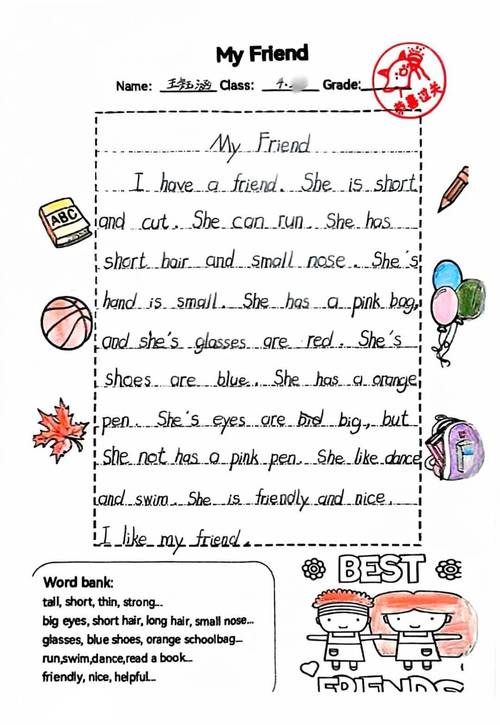 My Friend
Name: 王钰涵 Class: 4. Grade:
恭喜过关
My Friend
I have a friend. She is short
and cut. She can run. She has
short hair and small nose. She's
hand is small. She has a pink bag,
and she's glasses are red. She's
shoes are blue. She has a orange
pen. She's eyes are bid big, but
She not has a pink pen. She like dance
and swim. She is friendly and nice.
I like my friend.
ABC
Word bank:
tall, short, thin, strong...
big eyes, short hair, long hair, small nose...
glasses, blue shoes, orange schoolbag...
run,swim,dance,read a book...
friendly, nice, helpful...
BEST
FRIENDS